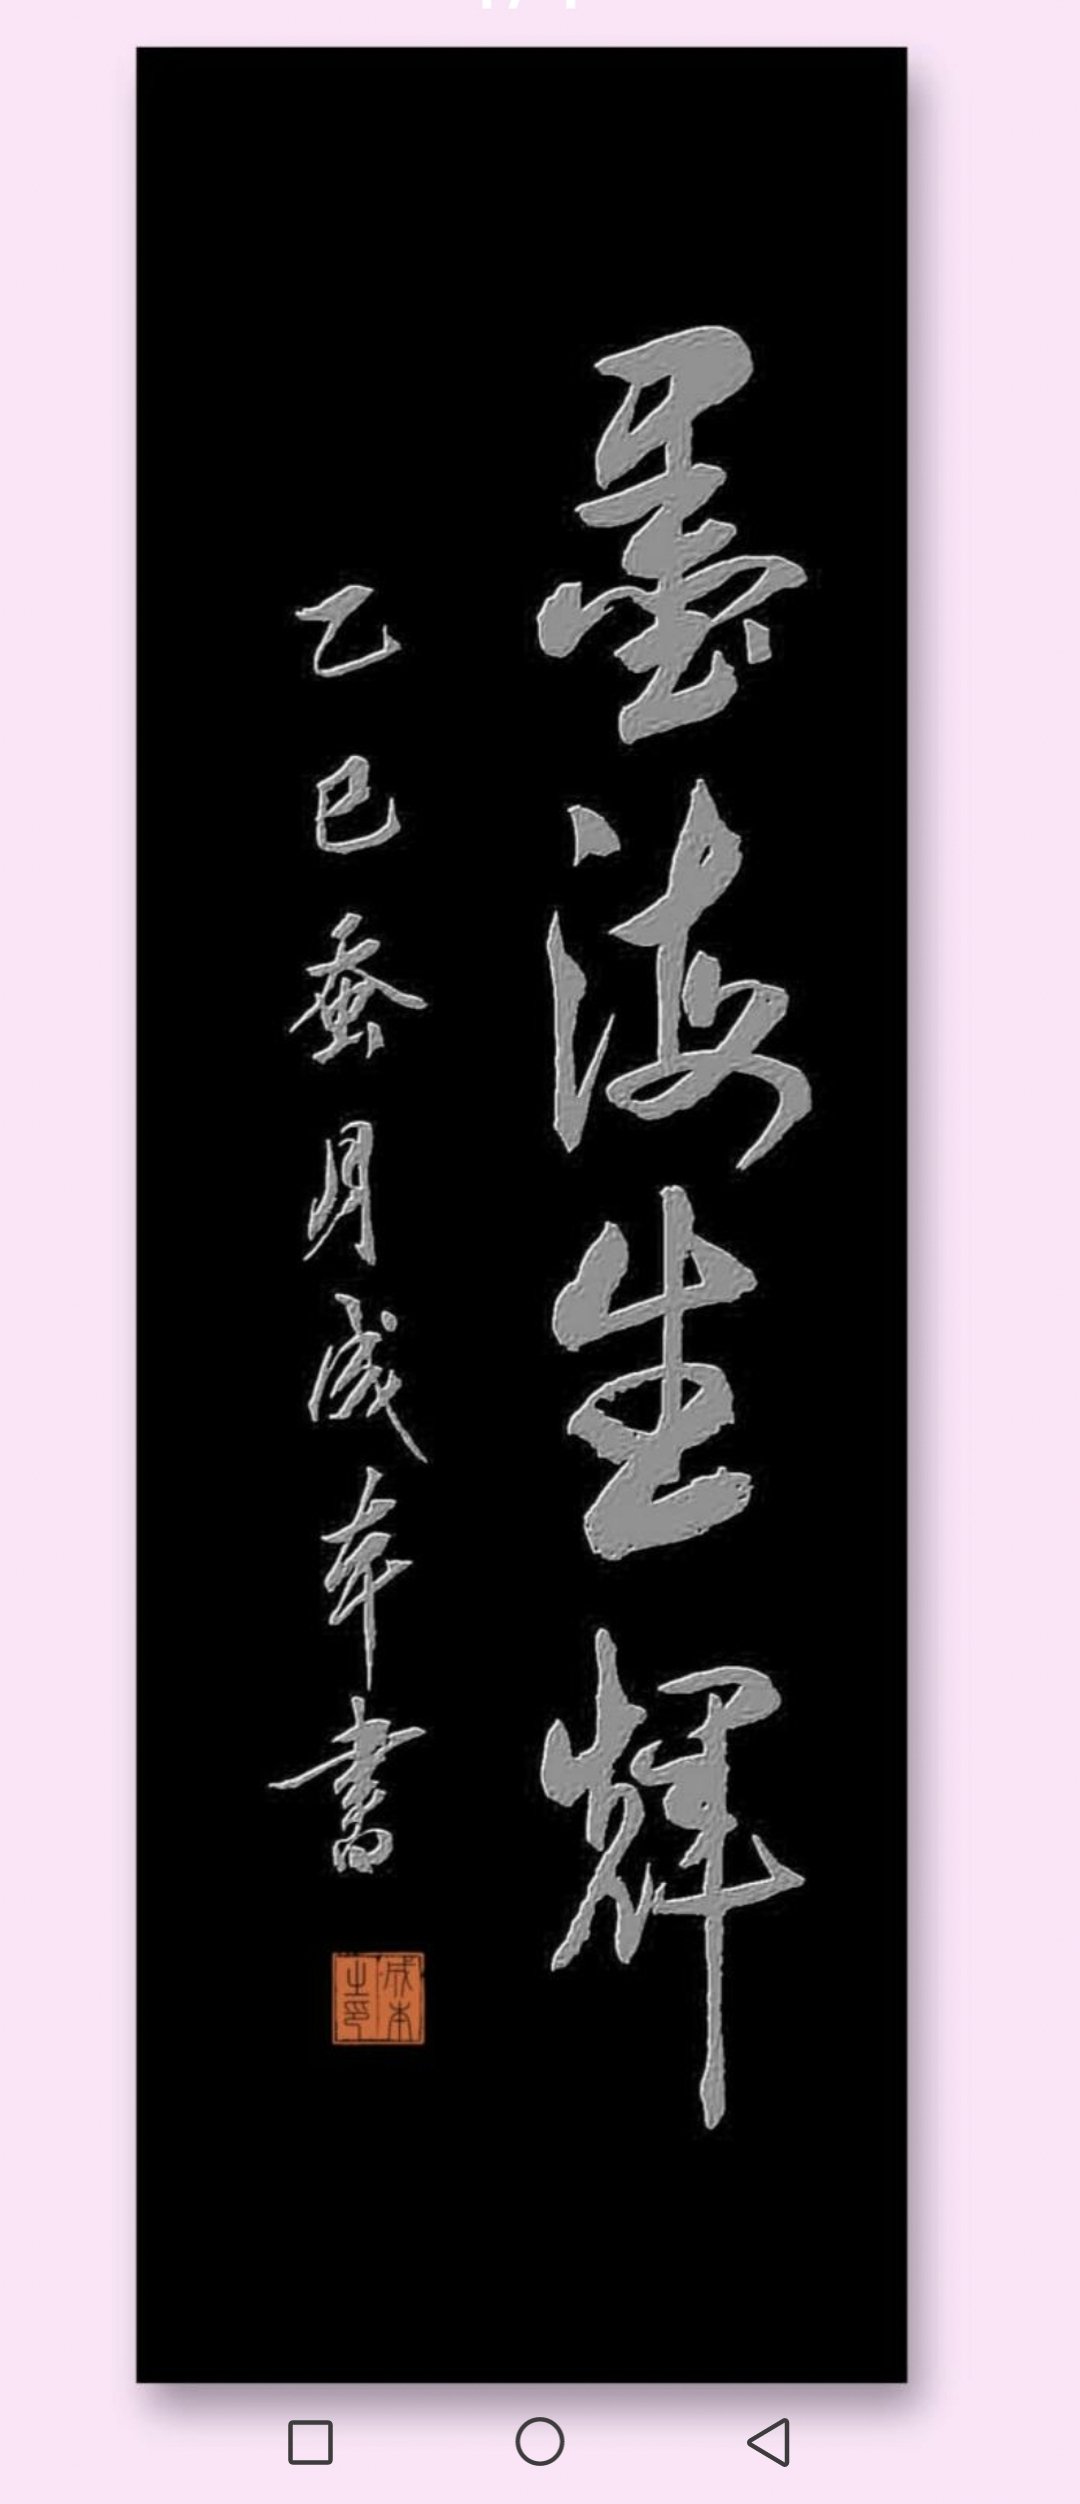 墨海生輝
乙巳蚕月成本書
成本之印